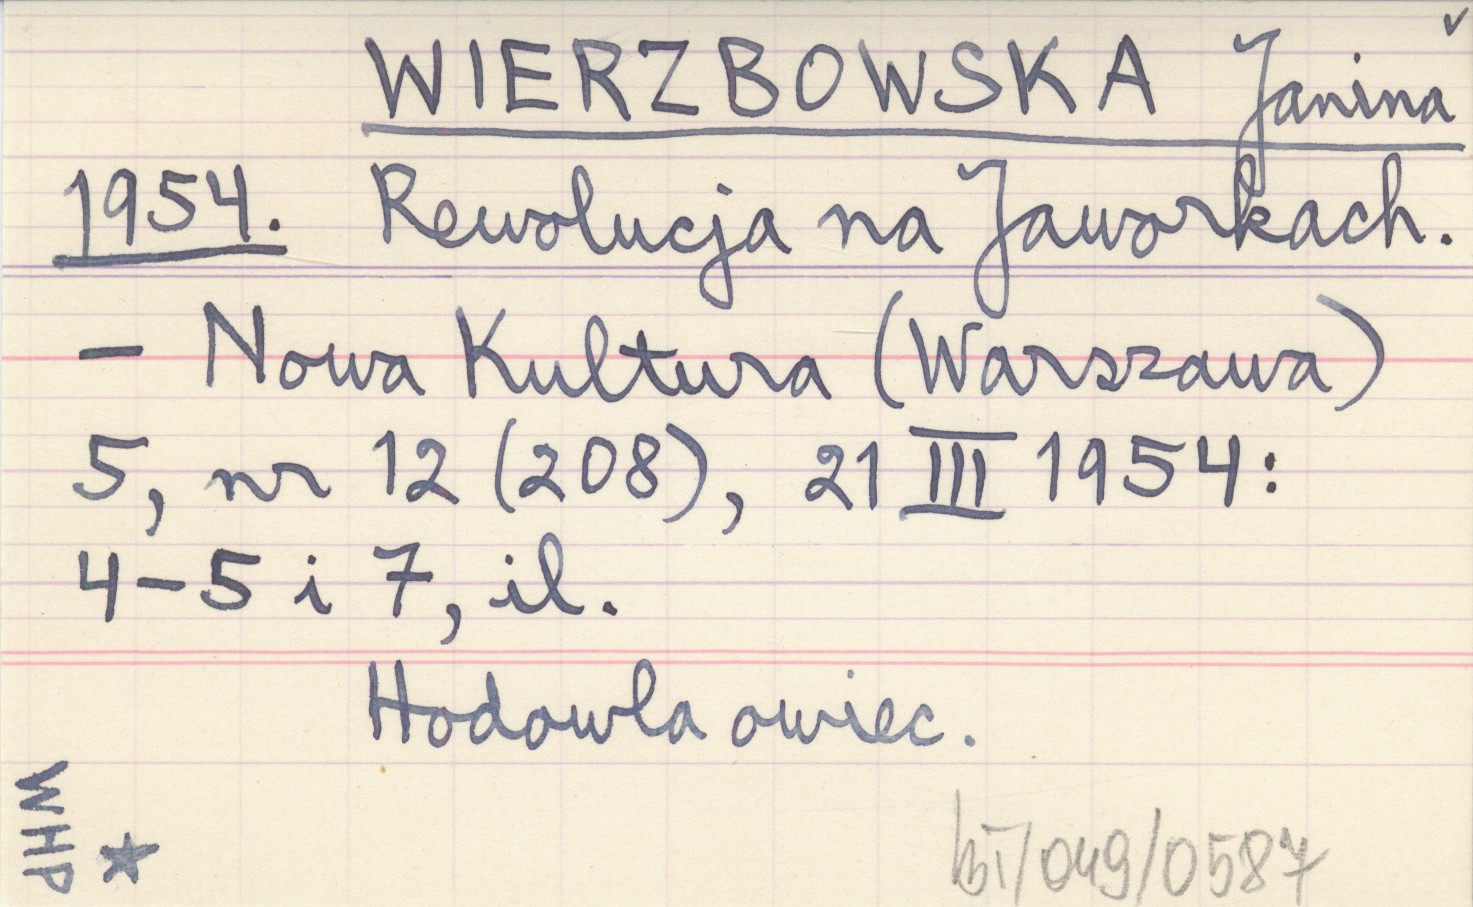 WIERZBOWSKA Janina
1954. Rewolucja na Jaworkach.
– Nowa Kultura (Warszawa)
5, nr 12 (208), 21 III 1954:
4–5 i 7, il.
Hodowla owiec.
WHP
/049/0587